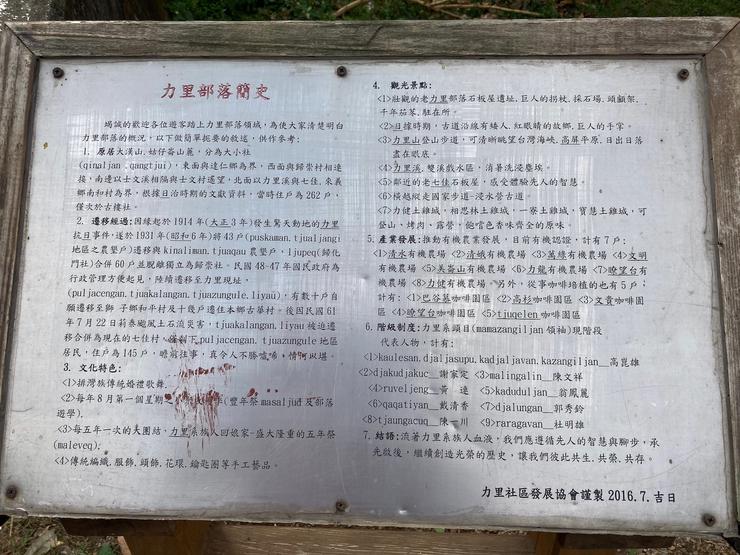 力里部落簡史
竭誠的歡迎各位遊客踏上力里部落領域,為使大家清楚明白
力里部落的概況,以下做簡單扼要的敘述,供作參考:
1. 原居大漢山.姑仔崙山麓,分為大小社
(qinaljan .qangtjui),東面與達仁鄉為界,西面與歸崇村相連
接,南邊以士文溪相隔與士文村遙望,北面以力里溪與七佳.來義
鄉南和村為界,根據日治時期的文獻資料,當時住戶為262戶,
僅次於古樓社。
2. 遷移經過:因緣起於1914年(大正3年)發生驚天動地的力里
抗日事件,遂於1931年(昭和6年)將43戶(puskaman.tjualjangi
地區之農墾戶)遷移與kinaliman.tjuaqau農墾戶,ljupeq(歸化
門社)合併60戶並脫離獨立為歸崇社。民國48-47年國民政府為
行政管理方便起見,陸續遷移至力里現址,
(puljacengan.tjuakalangan.tjuazungule.liyau),有數十戶自
願遷移至獅子鄉和平及十幾戶遷住本鄉古華村。後因民國61
年7月22日莉泰颱風土石流災害,tjuakalangan.liyau被迫遷
移合併為現在的七佳村,僅剩下puljacengan.tjuazungule地區
居民,住戶為145戶,瞻前往事,真令人不勝噓唏,情何以堪。
3. 文化特色:
<1>排灣族傳統婚禮歌舞。
<2>每年8月第一個星期(豐年祭masaljud及部落
遊學).
<3>每五年一次的大團結,力里系族人回娘家-盛大隆重的五年祭
(maleveq).
<4>傳統編織.服飾.頭飾.花環.鑰匙圈等手工藝品。
4. 觀光景點:
<1>壯觀的老力里部落石板屋遺址.巨人的拐杖.採石場.頭顱架.
千年茄苳.駐在所。
<2>日據時期,古道沿線有矮人.紅眼睛的故鄉.巨人的手掌。
<3>力里山登山步道,可清晰眺望台灣海峽.高屏平原.日出日落
盡在眼底。
<4>力里溪.雙溪戲水區,消暑洗浸塵埃。
<5>鄰近的老七佳石板屋,感受體驗先人的智慧。
<6>橫越縱走國家步道-浸水營古道。
<7>力健土雞城,相思林土雞城,一寮土雞城,寶慧土雞城,可
登山、烤肉、露營,飽嚐色香味齊全的原味。
5. 產業發展:推動有機農業發展,目前有機認證,計有7戶:
<1>清水有機農場 <2>清娥有機農場 <3>萬德有機農場 <4>文明
有機農場 <5>美崙山有機農場 <6>力龍有機農場 <7>瞭望台有
機農場 <8>力健有機農場。另外,從事咖啡培植的也有5戶;
計有:<1>巴谷慕咖啡園區 <2>高杉咖啡園區 <3>文貴咖啡園
區 <4>瞭望台咖啡園區 <5>tjuqelen咖啡園區
6. 階級制度:力里系頭目(mamazangiljan領袖)現階段
代表人物,計有:
<1>kaulesan.djaljasupu.kadjaljavan.kazangiljan__高崑雄
<2>djakudjakuc__謝家定 <3>malingalin__陳文祥
<4>ruveljeng__黃 連 <5>kaduduljan__翁鳳麗
<6>qaqatiyan__戴清香 <7>djalungan__郭秀鈴
<8>tjaungacuq__陳一川 <9>raragavan__杜明雄
7. 結語:流著力里系族人血液,我們應遵循先人的智慧與腳步,承
先啟後,繼續創造光榮的歷史,讓我們彼此共生.共榮.共存。
力里社區發展協會謹製2016.7.吉日